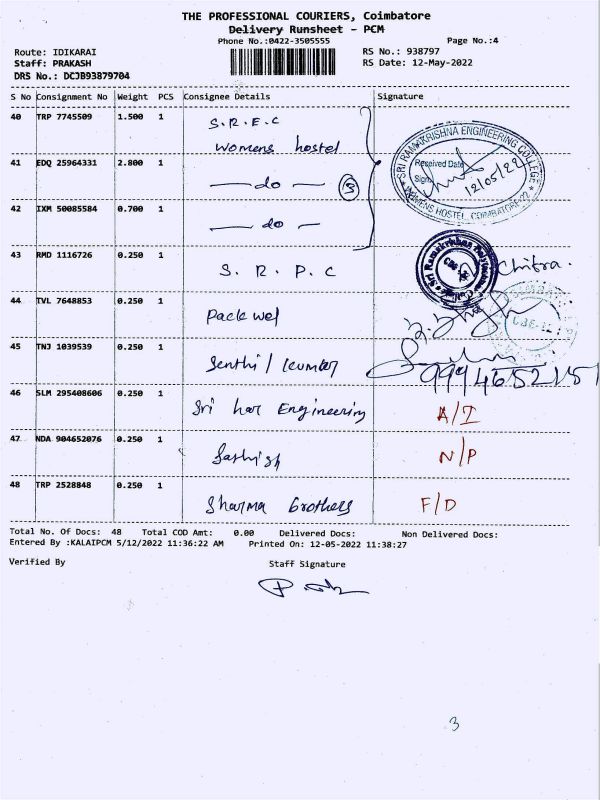 THE PROFESSIONAL COURIERS, Coimbatore
Delivery Runsheet - PCM
Phone No.:0422-3505555
Page No.:4
Route: IDIKARAI
RS No.: 938797
Staff: PRAKASH
RS Date: 12-May-2022
DRS No.: DCJB93879704
S No Consignment No Weight PCS Consignee Details Signature
40 TRP 7745509 1.500 1 S.R.E.C
womens hostel
SRI RAMAKRISHNA ENGINEERING COLLEGE
Received Date
Sign
12/05/22
WOMENS HOSTEL, COIMBATORE-22
41 EDQ 25964331 2.800 1 — do — 3
42 IXM 50085584 0.700 1 — do —
43 RMD 1116726 0.250 1 S. R. P. C
Chitra.
44 TVL 7648853 0.250 1 Pack wel
45 TNJ 1039539 0.250 1 Senthil kumar
9994652151
46 SLM 295408606 0.250 1 Sri har Engineering A/I
47 NDA 904652076 0.250 1 Sathish N/P
48 TRP 2528848 0.250 1 Sharma brothers F/D
Total No. Of Docs: 48 Total COD Amt: 0.00 Delivered Docs: Non Delivered Docs:
Entered By :KALAIPCM 5/12/2022 11:36:22 AM Printed On: 12-05-2022 11:38:27
Verified By Staff Signature
3